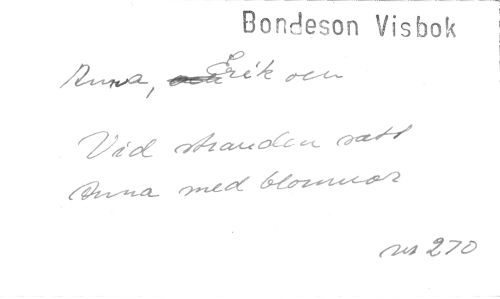 Bondeson Visbok
Anna, Erik och
Vid stranden satt
Anna med blommor
nr 270